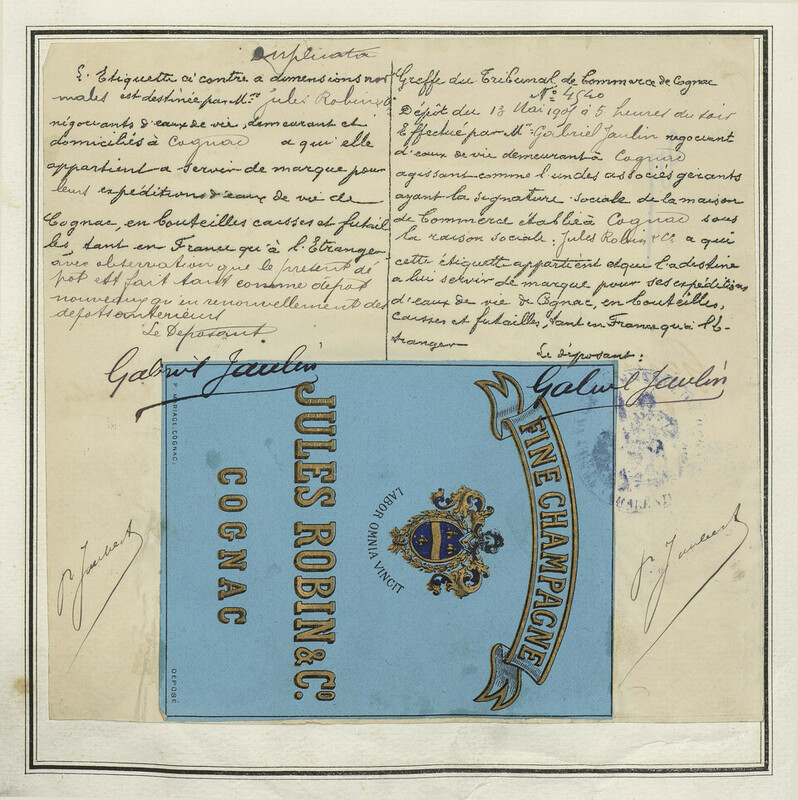 Duplicata
L'Etiquette ci contre a dimensions nor
males est destinée par Mrs Jules Robin & Co
négociants d'eaux de vie, demeurant et
domiciliés à Cognac a qui elle
appartient a servir de marque pour
leurs expéditions d'eaux de vie de
Cognac, en bouteilles caisses et futail
les, tant en France qu'à l'Etranger
avec observation que le présent dé
pot est fait tant comme dépot
nouveau qu'en renouvellement des
depots anterieurs
Le Deposant
Gabriel Jaulin
Greffe du Tribunal de Commerce de Cognac
No 4540
Dépôt du 13 Mai 1907 à 5 heures du soir
Effectué par Mr Gabriel Jaulin negociant
d'eaux de vie demeurant à Cognac
agissant comme l'un des associés gérants
ayant la signature sociale de la maison
de Commerce établie à Cognac sous
la raison sociale: Jules Robin & Co a qui
cette étiquette appartient et qui l'a destine
a lui servir de marque pour ses expéditions
d'eaux de vie de Cognac, en bouteilles,
caisses et futailles, tant en France qu'à l'E-
tranger
Le déposant:
Gabriel Jaulin
FINE CHAMPAGNE
LABOR OMNIA VINCIT
JULES ROBIN & Co.
COGNAC
P. MARIAGE. COGNAC.
DÉPOSÉ